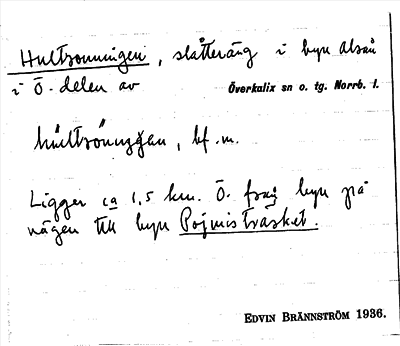 Hultronningen, slåtteräng i byn Alsån
i Ö. delen av Överkalix sn o. tg. Norrb. l.
bf. m.
Ligger ca 1,5 km. Ö. från byn på
vägen till byn Pojmisträsket.
EDVIN BRÄNNSTRÖM 1936.